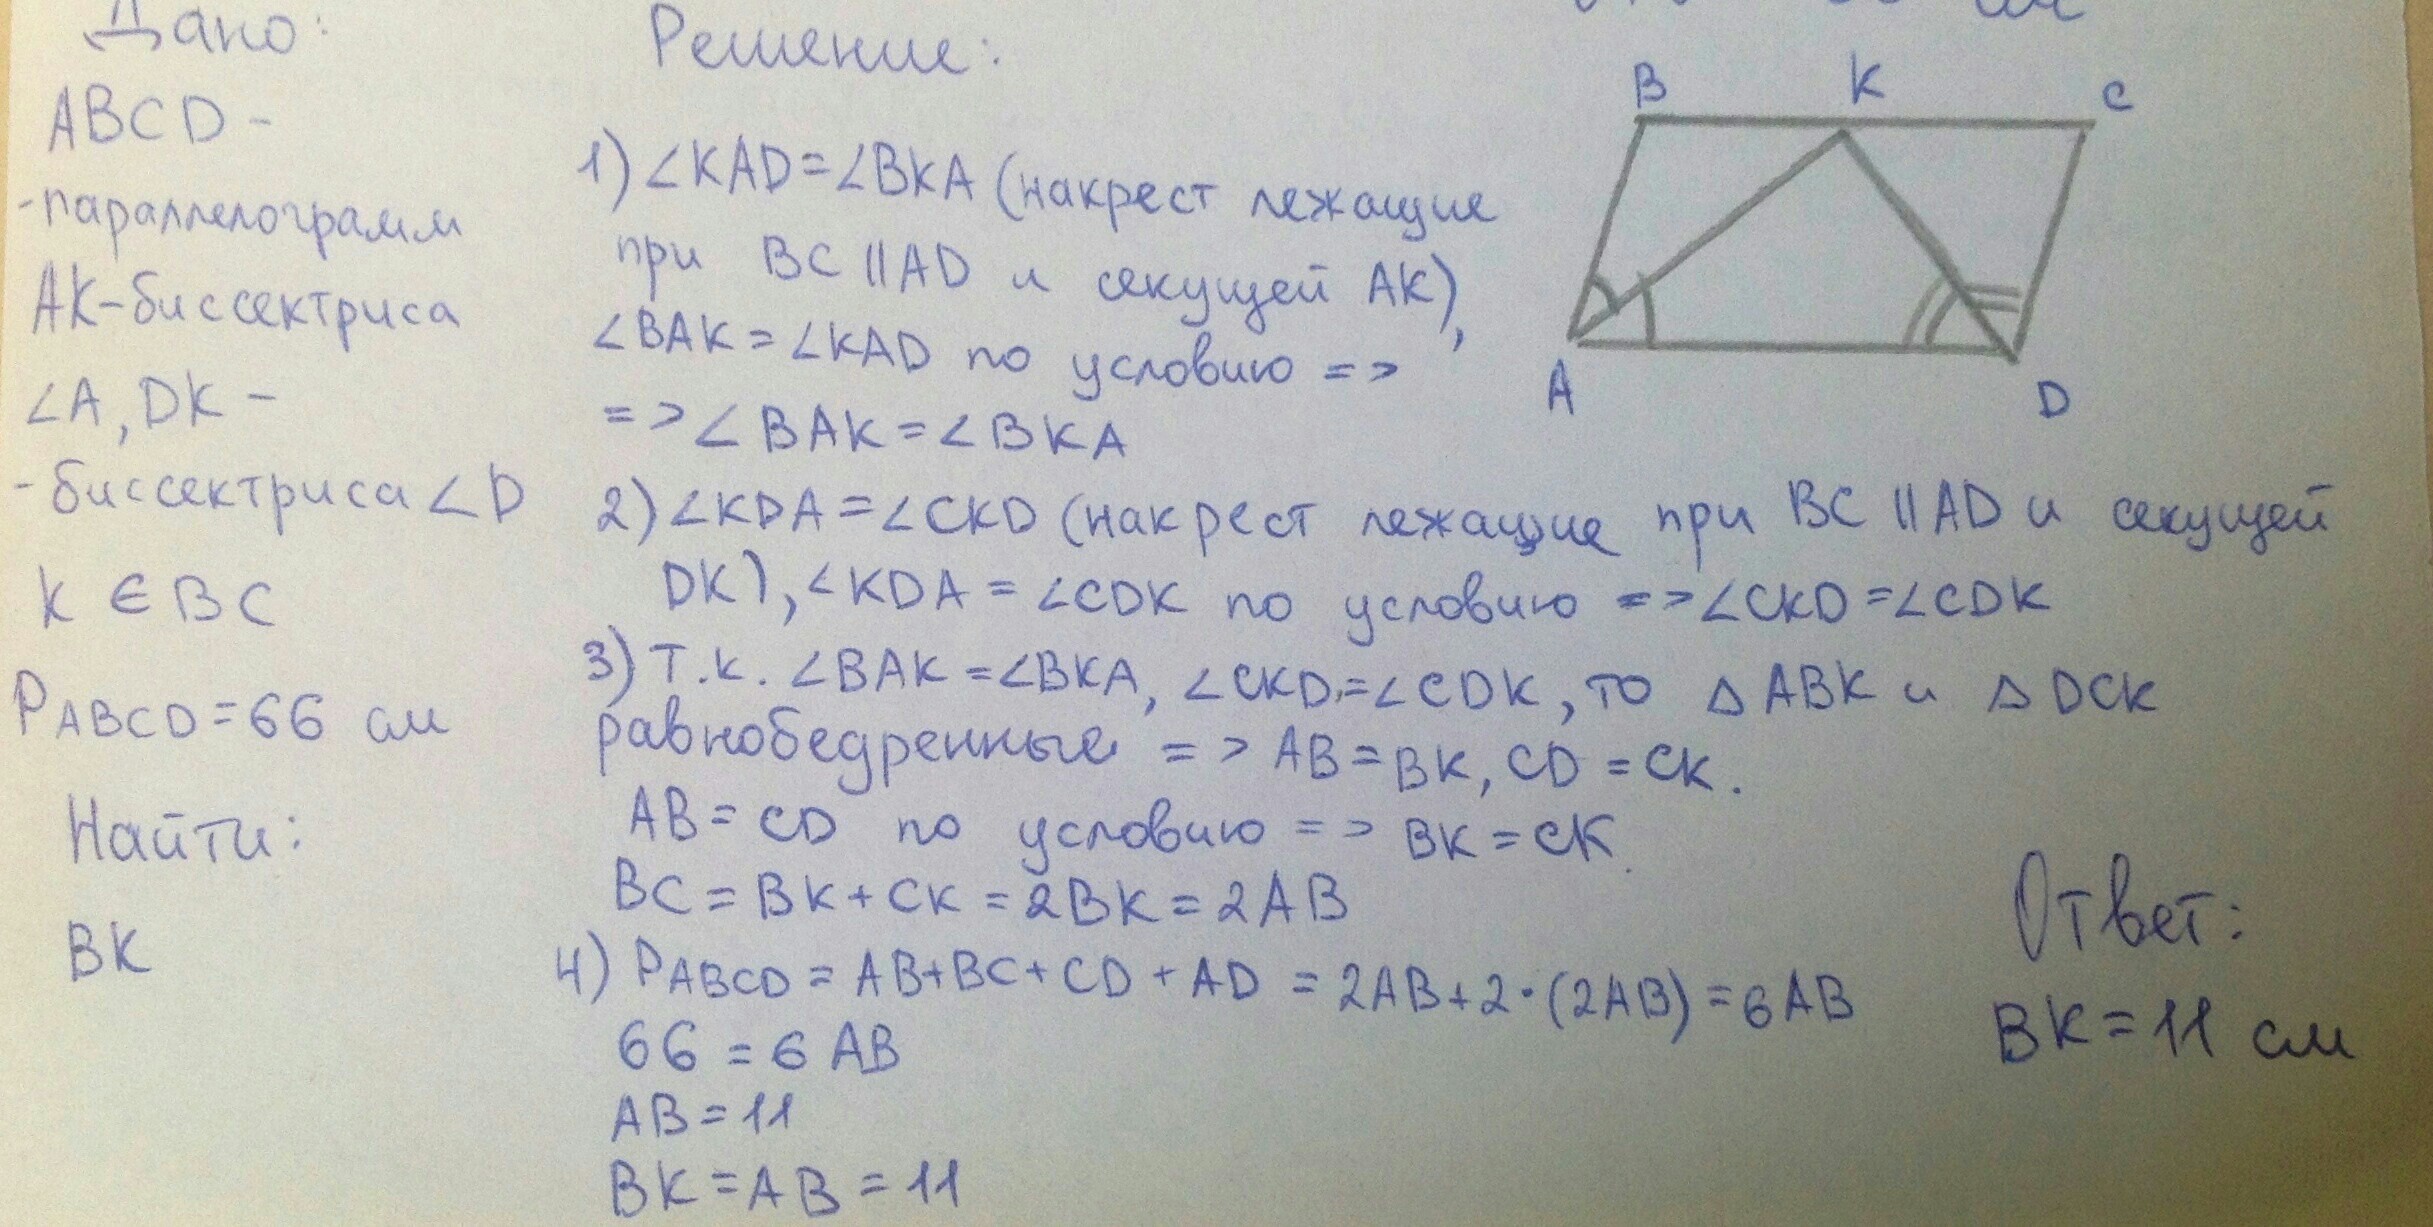 Дано:
ABCD -
-параллелограмм
AK-биссектриса
∠A, DK -
-биссектриса ∠D
K ∈ BC
PABCD = 66 см
Найти:
BK
Решение:
1) ∠KAD = ∠BKA (накрест лежащие
при BC || AD и секущей AK),
∠BAK = ∠KAD по условию =>
=> ∠BAK = ∠BKA
2) ∠KDA = ∠CKD (накрест лежащие при BC || AD и секущей
DK), ∠KDA = ∠CDK по условию => ∠CKD = ∠CDK
3) Т.к. ∠BAK = ∠BKA, ∠CKD = ∠CDK, то △ ABK и △ DCK
равнобедренные => AB = BK, CD = CK.
AB = CD по условию => BK = CK.
BC = BK + CK = 2BK = 2AB
4) PABCD = AB + BC + CD + AD = 2AB + 2·(2AB) = 6AB
66 = 6 AB
AB = 11
BK = AB = 11
B K C
A D
Ответ:
BK = 11 см